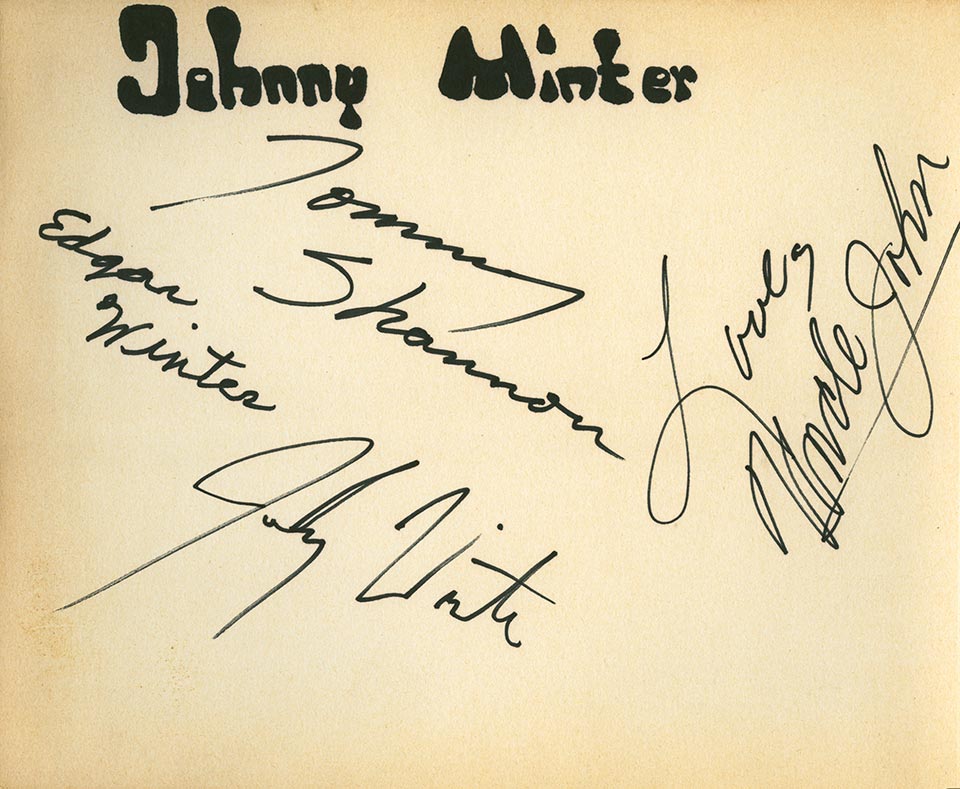 Johnny Winter
Tommy
Shannon
Edgar
Winter
Love,
Uncle John
Johnny Winter